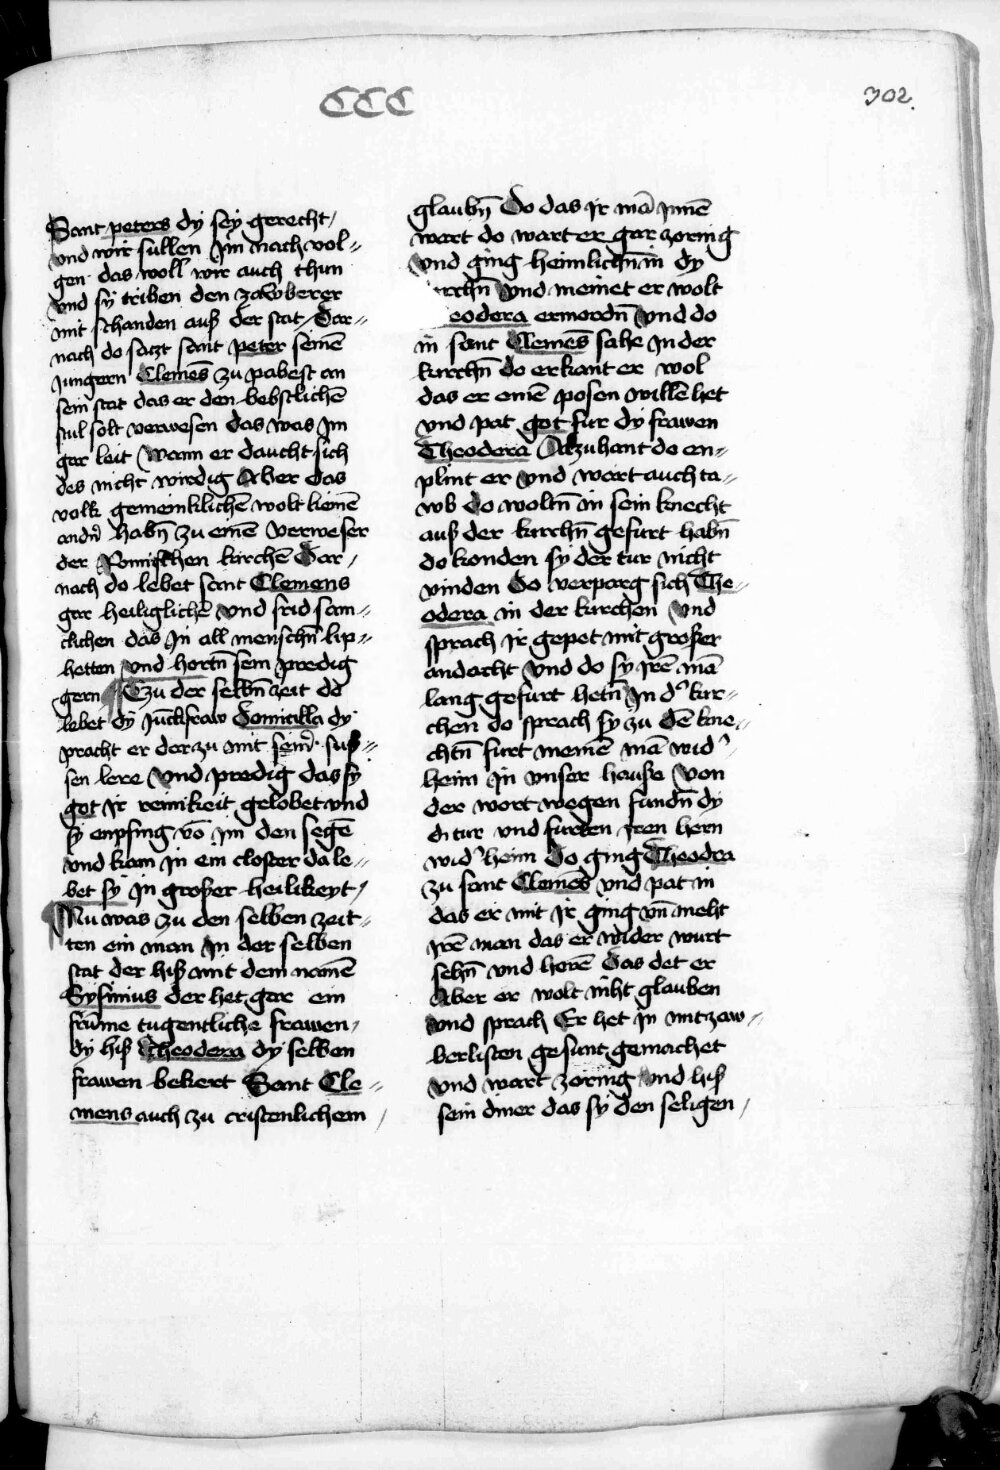 CCC
302.
Sant peters dy sey gerecht /
vnd wir sullen Jm nach vol⸗
gen das woll wir auch thun
vnd sy triben den zawberer
mit schanden auß der stat / Dar⸗
nach do saczt sant peter seinē
Jungern Clemēs zu pabest an
sein stat das er den bebstlichē
stul solt verwesen das was Jm
gar leit Wann er daucht sich
des nicht wirdig Aber das
volk gemeinklichen wolt keinē
andn̄ habn̄ zu einē Verweser
der Romischen kirchē Dar /
nach do lebet sant Clemens
gar heiliglichē Vnd frid sam⸗
clichen das Jn all menschn̄ lip⸗
hetten vnd hortn̄ sein predig
gern Czu der selbn̄ zeit do
lebet dy Juckfraw Domicilla dy
pracht er darzu mit seinr̄ suß⸗
sen lere Vnd predig das sy
got Jr reinikeit gelobet vnd
sy enpfing vō im den segē
vnd kam Jn ein closter da le⸗
bet sy Jn großer heilikeyt /
Nu was zu den selben zeit⸗
ten ein man Jn der selben
stat der hiß mit dem namē
Sysinius der het gar ein
frūme tugentliche frawen /
dy hiß Theodera dy selben
frawen bekert Sant Cle⸗
mens auch zu cristenlichem /
glaubn̄ Do das Jr mā Jnnē
wart do wart er gar zornig
Vnd ging heimlichn̄ in dy
rchn̄ Vnd meinet er wolt
eodera ermordn̄ Vnd do
in sant Clemēs sahe Jn der
kirchn̄ do erkant er wol
das er einē posen willē het
vnd pat got fur dy frawen
Theodera Alzuhant do en⸗
plint er Vnd wart auch ta⸗
wb Do woltn̄ in sein knecht
auß der kirchn̄ gefurt habn̄
do konden sy der tur nicht
vinden Do verparg sich The⸗
odera in der kirchen Vnd
sprach Jr gepet mit großer
andacht Vnd do sy Jrē mā
lang gefurt hetn̄ Jn d' kir⸗
chen do sprach sy zu dē kne⸗
chtn̄ furt meinē mā wid'
heim Jn vnser hauße Von
der wort wegen fundn̄ dy
di tur vnd furten Jren hern
wid' heim Do ging Theodra
zu sant Clemēs vnd pat in
das er mit Jr ging vn̄ meht
Jrē man das er wider wurt
sehn̄ vnd horē Das det er
Aber er wolt niht glauben
vnd sprach Er het in mit zaw⸗
berlisten gesunt gemachet
Vnd wart zornig Vnd hiß
sein diner das sy den seligen /